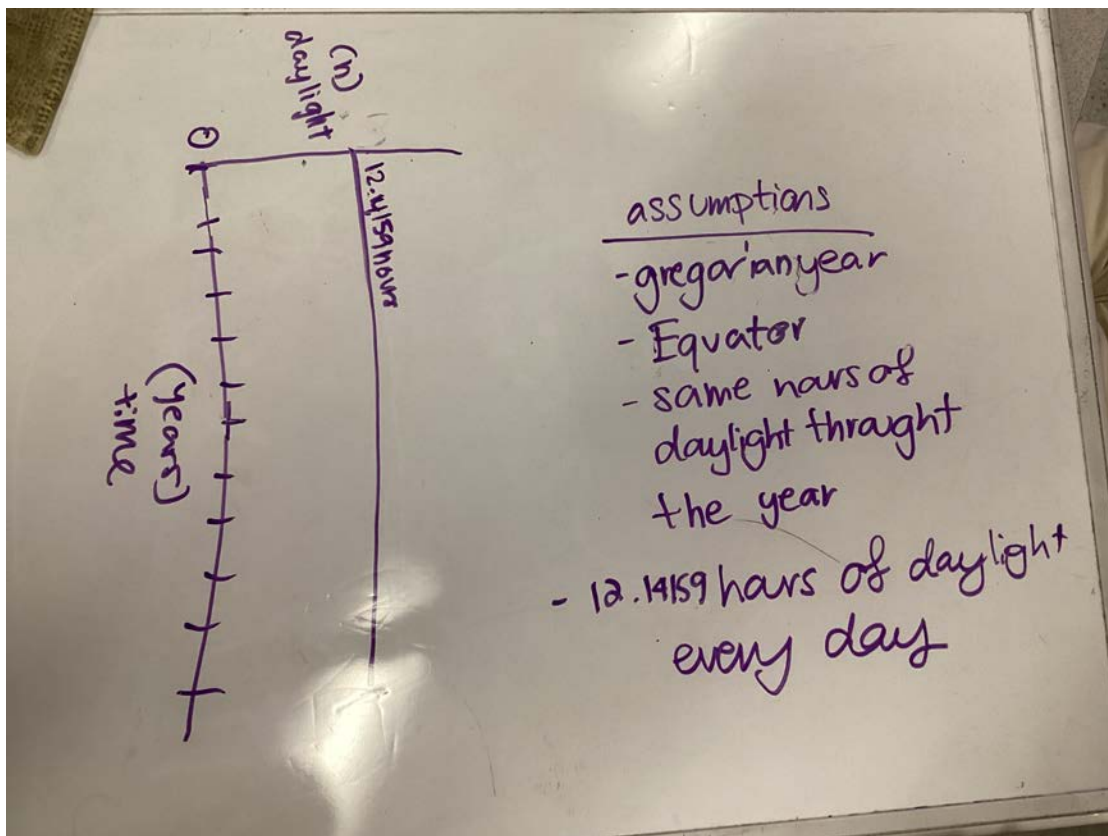 (h)
daylight
0
12.14159 hours
(years)
time
assumptions
-gregorian year
- Equator
- same hours of
daylight throught
the year
- 12.14159 hours of daylight
every day